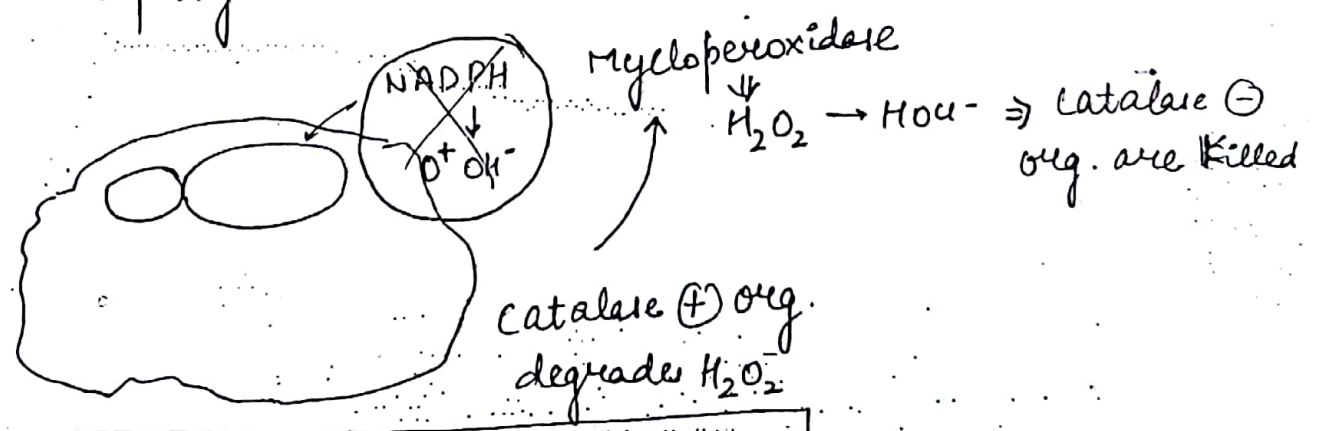 NADPH
↓
O⁺ OH⁻
Mycloperoxidase
⇓
H₂O₂ → HOCl⁻ ⇒ Catalase ⊖
org. are Killed
Catalase ⊕ org.
degrades H₂O₂⁻